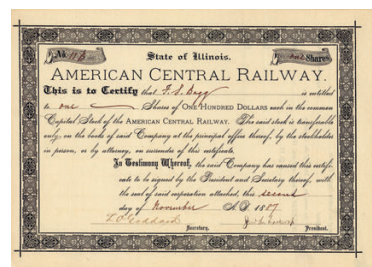 No.
State of Illinois.
Share
AMERICAN CENTRAL RAILWAY.
This is to Certify that is entitled
to one Shares of ONE HUNDRED DOLLARS each in the common
Capital Stock of the AMERICAN CENTRAL RAILWAY. The said stock is transferable
only, on the books of said Company at the principal office thereof, by the stockholder
in person, or by attorney, on surrender of this certificate.
In Testimony Whereof, the said Company has caused this certifi-
cate to be signed by the President and Secretary thereof, with
the seal of said corporation attached, this second
day of November A.D. 1887
Secretary.
President.